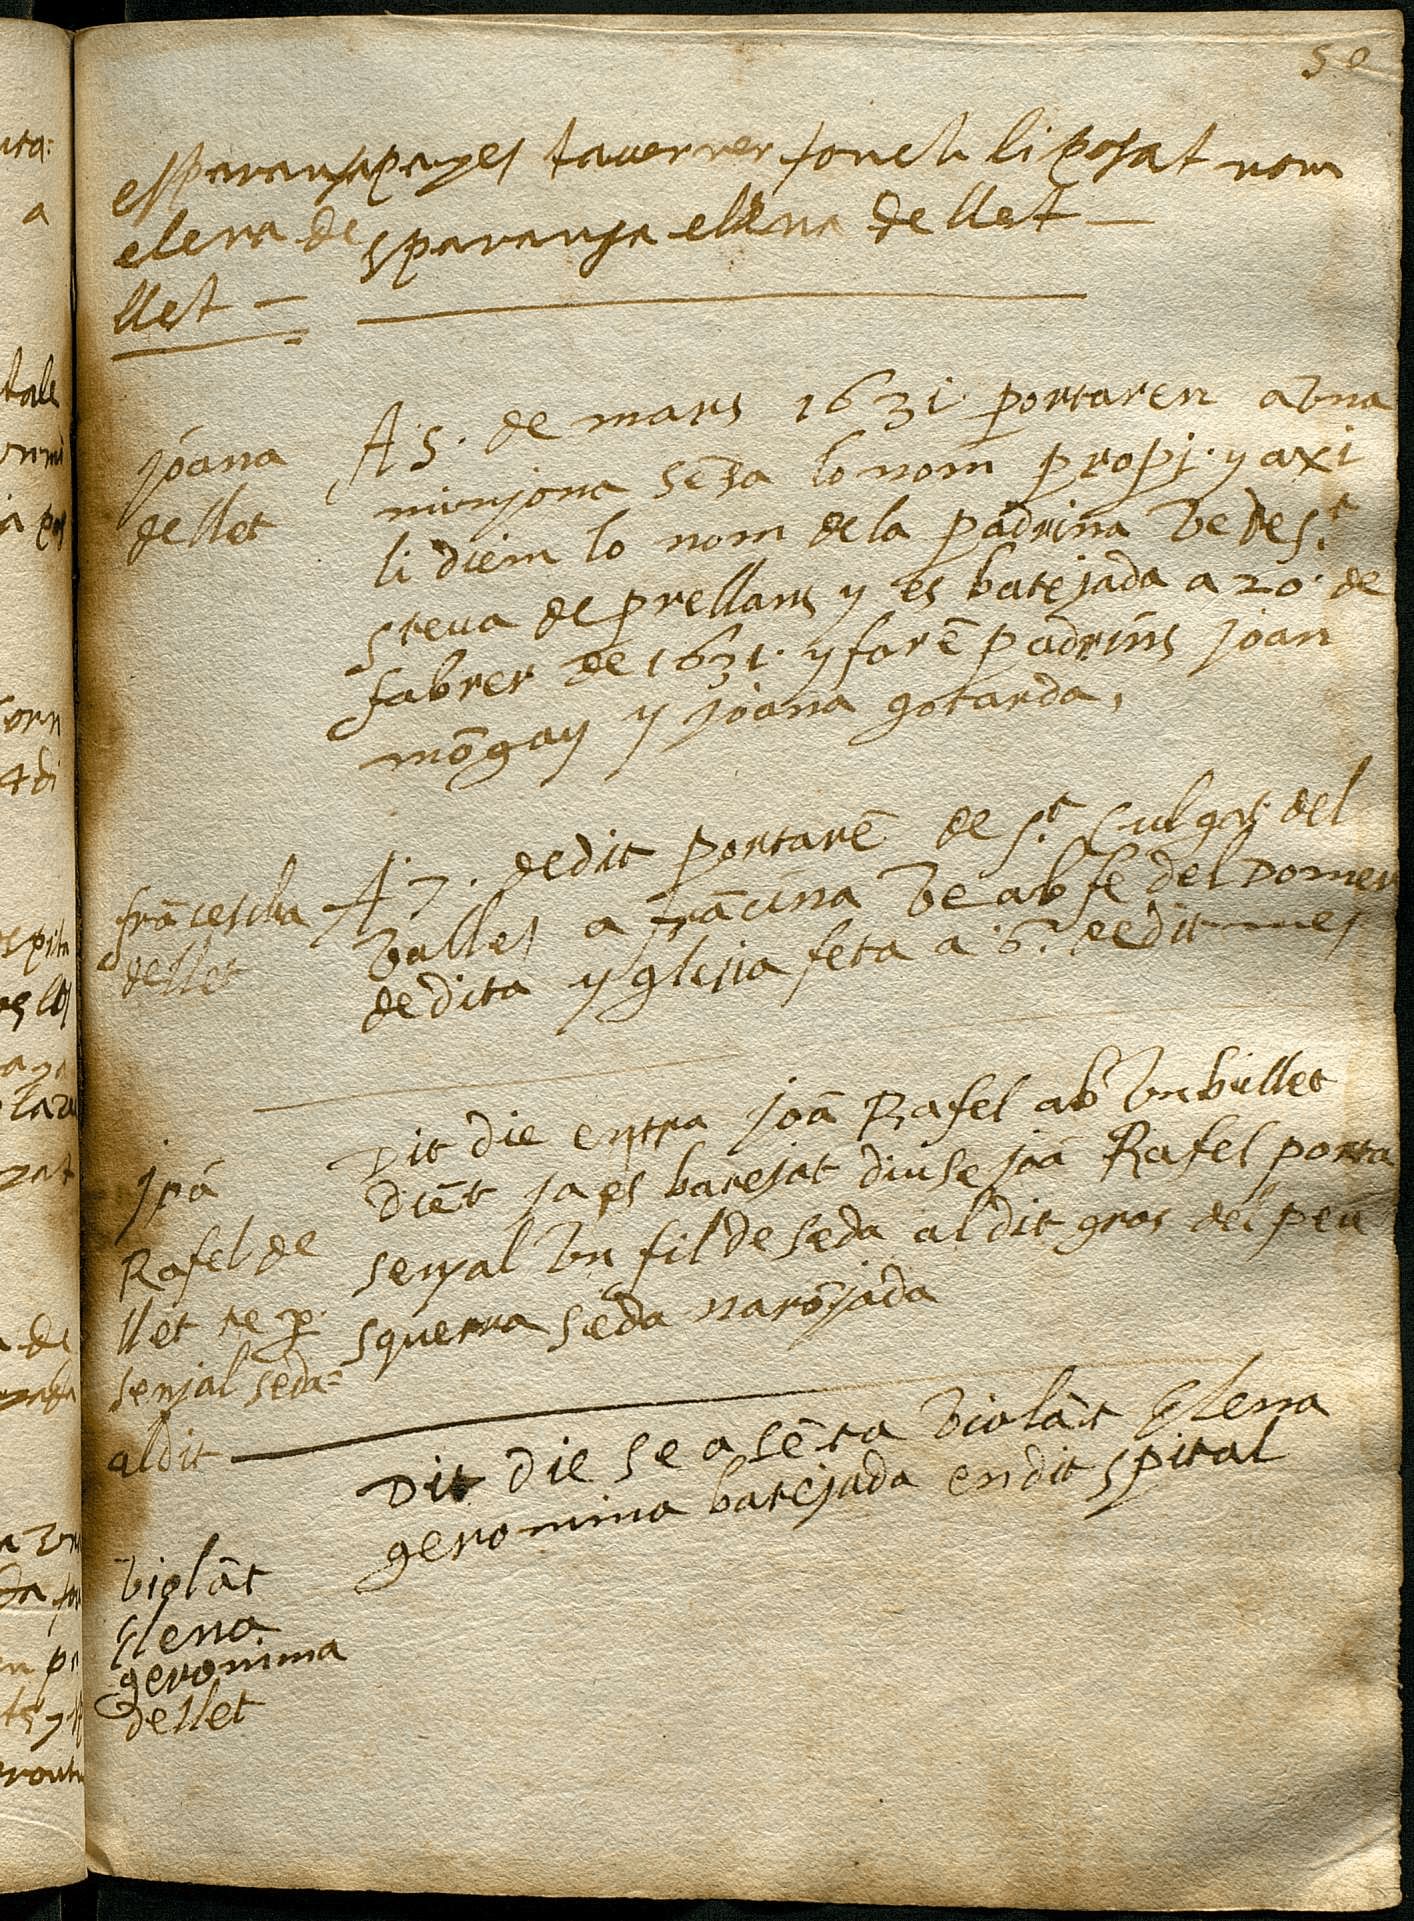 50
esparansa
elena de
llet —
payes tauerner fonch li posat nom
sparansa ellena de llet —
joana
de llet
A 5. de mars 1631 portaren a vna
minyona sēsa lo nom propi. y axi
li diem lo nom de la padrina ve de St
steua de prellans y es batejada a 20. de
fabrer de 1631. y forē padrins joan
mōgay y joana gotarda.
frācescha
de llet
A 7. de dit portarē de St sulgat del
valles a frācina ve ab fe del Domer
de dita yglesia feta a 6. de dit mes
joā
Rafel de
llet te p
senyal seda
al dit
Dit die entra joā Rafel ab vn bullet
diēt ja es batejat diuse joā Rafel porta
senyal vn fil de seda al dit gros del peu
squerra seda narōjada
violāt
Elena
geronima
de llet
Dit die se a sēta violāt Elena
geronima batejada en dit spital